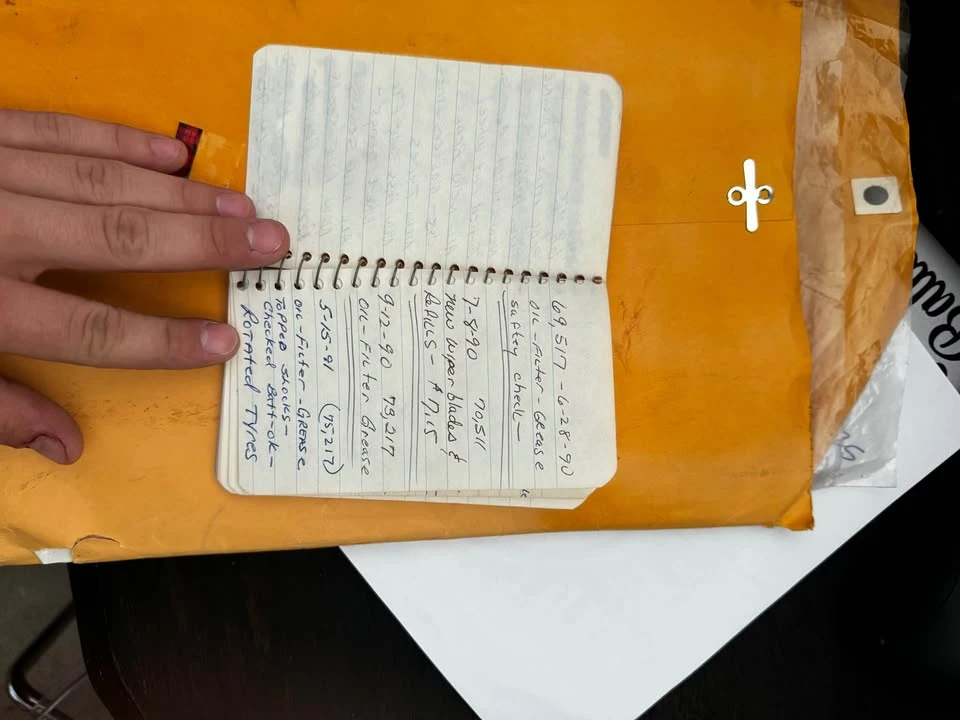 69,517 - 6-28-90
OIL-Filter-Grease
saftey check-
7-8-90 70,511
New wiper blades &
Refills- 
9-12-90 73,217
OIL-Filter Grease
5-15-91 (75,217)
OIL-Filter-GREASE
TOPPED Shocks-
Checked Batt-ok-
ROTATED TYRES